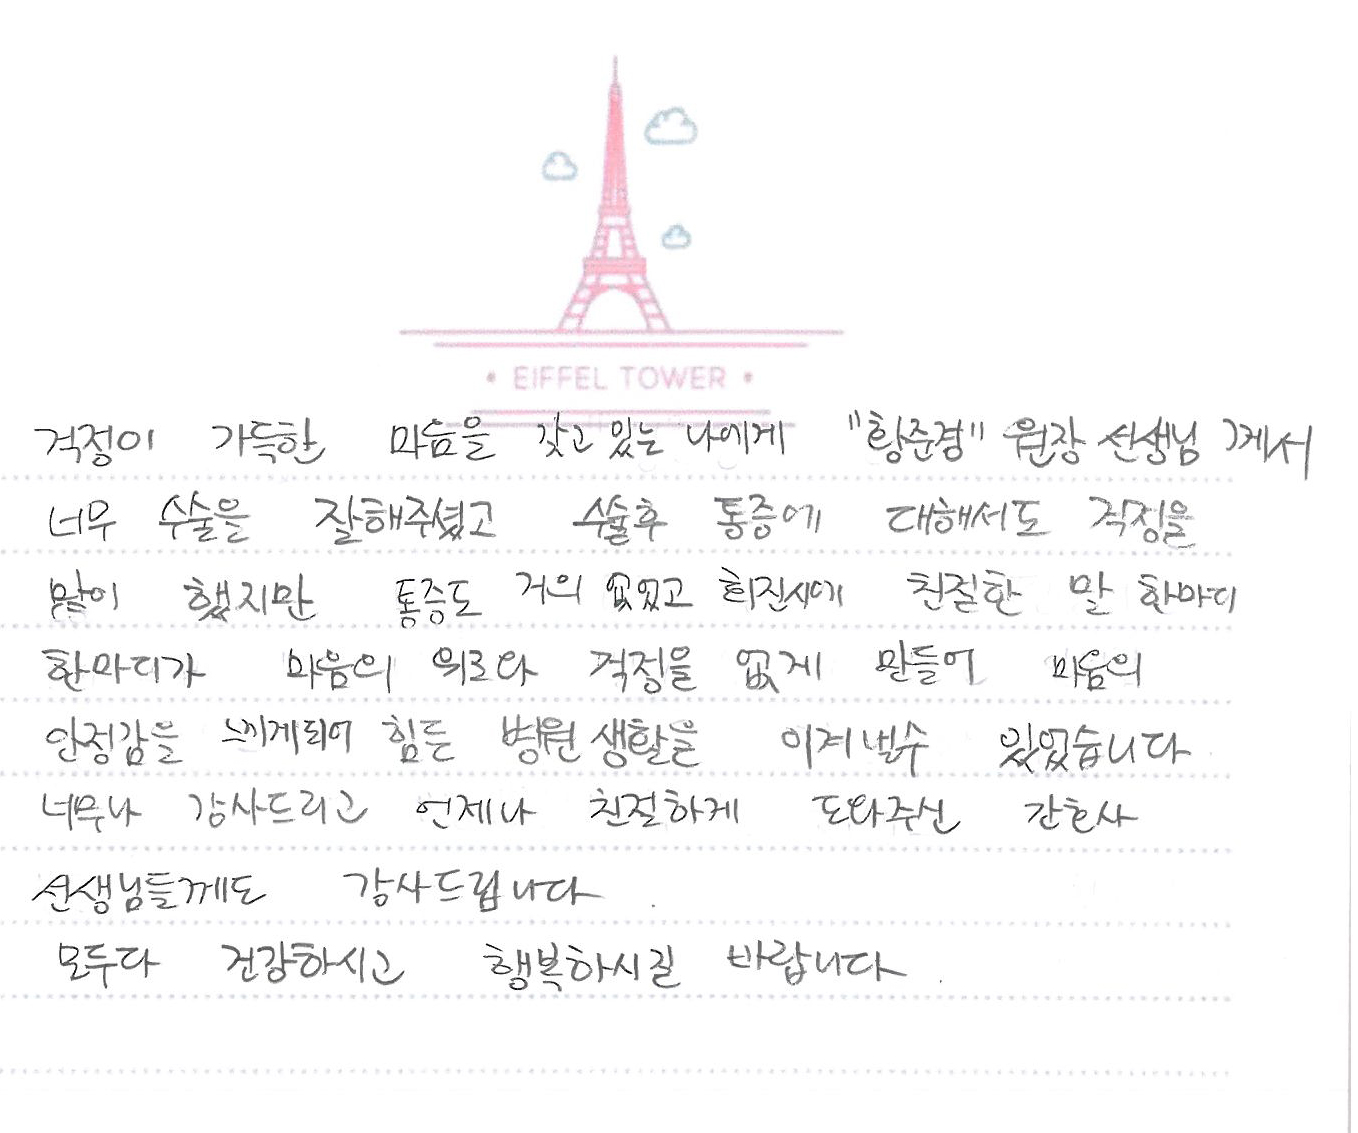 • EIFFEL TOWER •
걱정이 가득한 마음을 갖고 있는 나에게 "황준경" 원장 선생님께서
너무 수술을 잘해주셨고 수술후 통증에 대해서도 걱정을
많이 했지만 통증도 거의 없었고 회진시에 친절한 말 한마디
한마디가 마음의 위로와 걱정을 없게 만들어 마음의
안정감을 느끼게되어 힘든 병원 생활을 이겨낼수 있었습니다
너무나 감사드리고 언제나 친절하게 도와주신 간호사
선생님들께도 감사드립니다.
모두다 건강하시고 행복하시길 바랍니다.